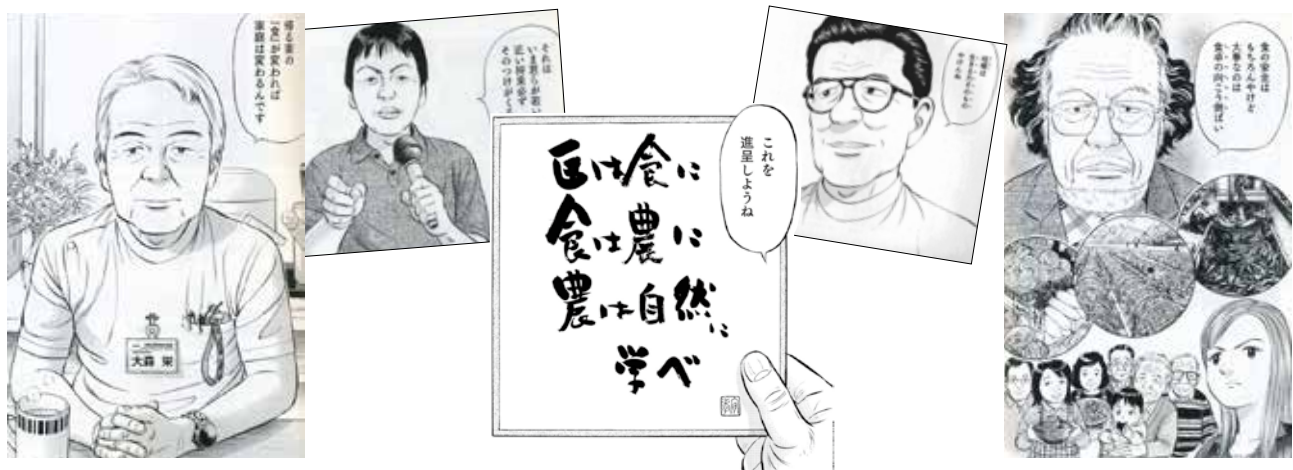 「食」が変われば
家庭は変わるんです
大森 栄
それは
いま君らが若い
近い将来必ず
そのつけがく
医は食に
食は農に
農は自然に
学べ
これを
進呈しようね
食の安全は
もちろんやけど
大事なのは
食卓の向こう側ばい